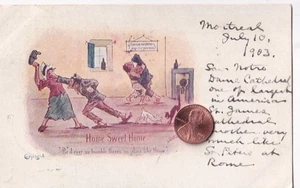 Montreal
July 10,
1903.
Notre
Dame Cathedral
one of largest
in America
St. James
Cathedral
another very
much like
St. Peter's at
Rome
Home Sweet Home
"Be it ever so humble there's no place like Home"